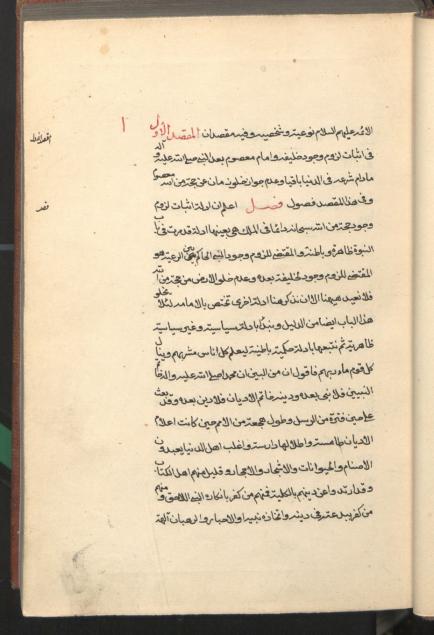 الائمة عليهم السلام نوعية وشخصية وفيه مقصدان المقصد الأول
في اثبات لزوم وجود خليفة وامام معصوم بعد النبي صلى الله عليه وآله
مادام شرعه في الدنيا باقيا وعدم جواز خلو زمان عن حجة من الله معصوم
وفي هذا المقصد فصول فصل اعلم ان ادلة اثبات لزوم
وجود حجة من الله سبحانه دائما في الملك هي بعينها ادلة قد مرت في باب
النبوة ظاهرة وباطنة والمقتضي للزوم وجود النبي الحاكم بين الرعية هو
المقتضي للزوم وجود الخليفة بعده وعدم خلو الارض من حجة من الله
فلا نعيد هيهنا الا ان نذكر هنا ادلة اخرى تختص بالامامة لئلا يخلو
هذا الباب ايضا من الدليل ونبدأ بادلة سياسية وغير سياسية
ظاهرية ثم نتبعها بادلة حكمية باطنية ليعلم كل اناس مشربهم وينال
كل قوم مأدبهم فاقول ان من البين ان محمدا صلى الله عليه وآله خاتم
النبيين فلا نبي بعده ودينه خاتم الاديان فلا دين بعده وقد بعث
على حين فترة من الرسل وطول هجعة من الامم حين كانت اعلام
الاديان طامسة واطلالها دارسة واغلب اهل الدنيا يعبدون
الاصنام والحيوانات والاشجار والاحجار وقليل منهم اهل الكتاب
وقد ارتدوا عن دينهم بالكلية فمنهم من كفر بانكاره النبي اللاحق ومنهم
من كفر ببدعته في دينه واتخاذه نبيه والاحبار والرهبان آلهة